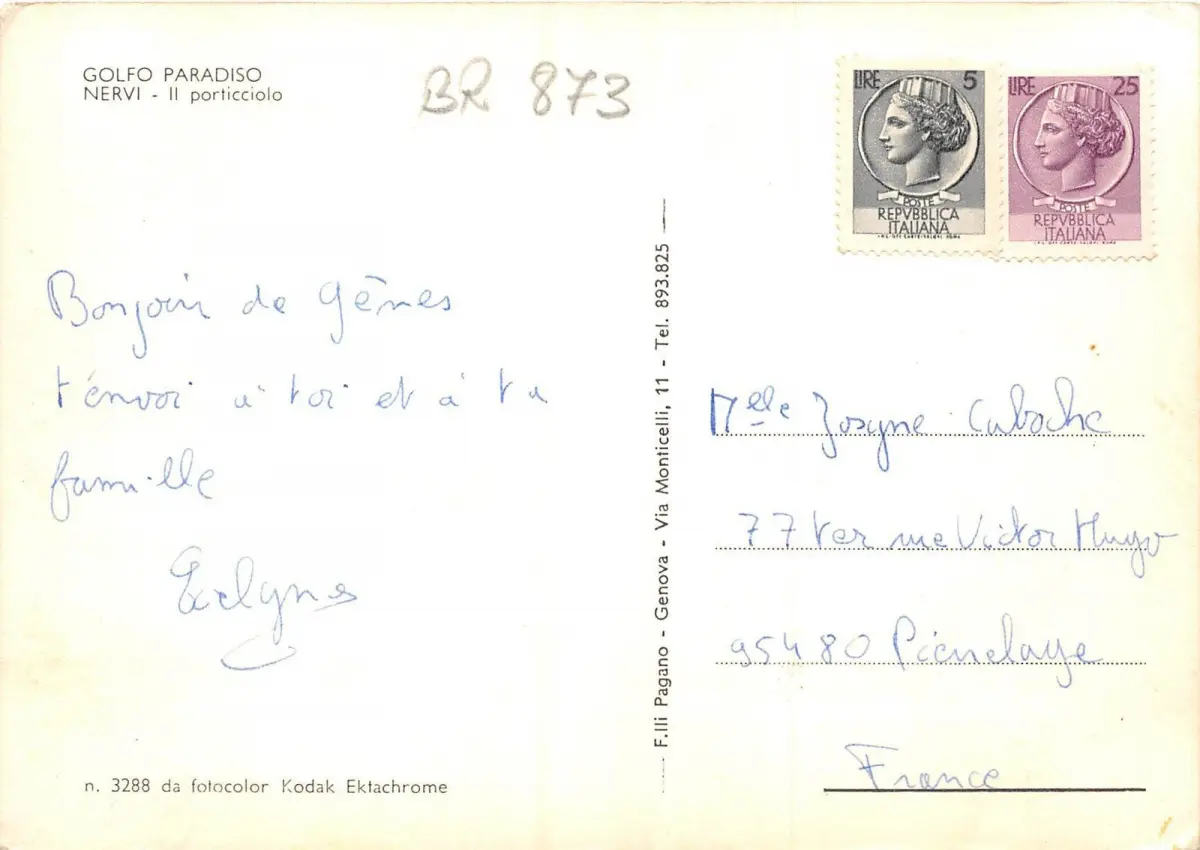 GOLFO PARADISO
NERVI - Il porticciolo
BR 873
LIRE 5
POSTE
REPVBBLICA
ITALIANA
LIRE 25
POSTE
REPVBBLICA
ITALIANA
Bonjour de Gênes
t'envoi à toi et à ta
famille
F.lli Pagano - Genova - Via Monticelli, 11 - Tel. 893.825
Melle Josyne Caboche
77 ter rue Victor Hugo
95480 Pierrelaye
France
n. 3288 da fotocolor Kodak Ektachrome